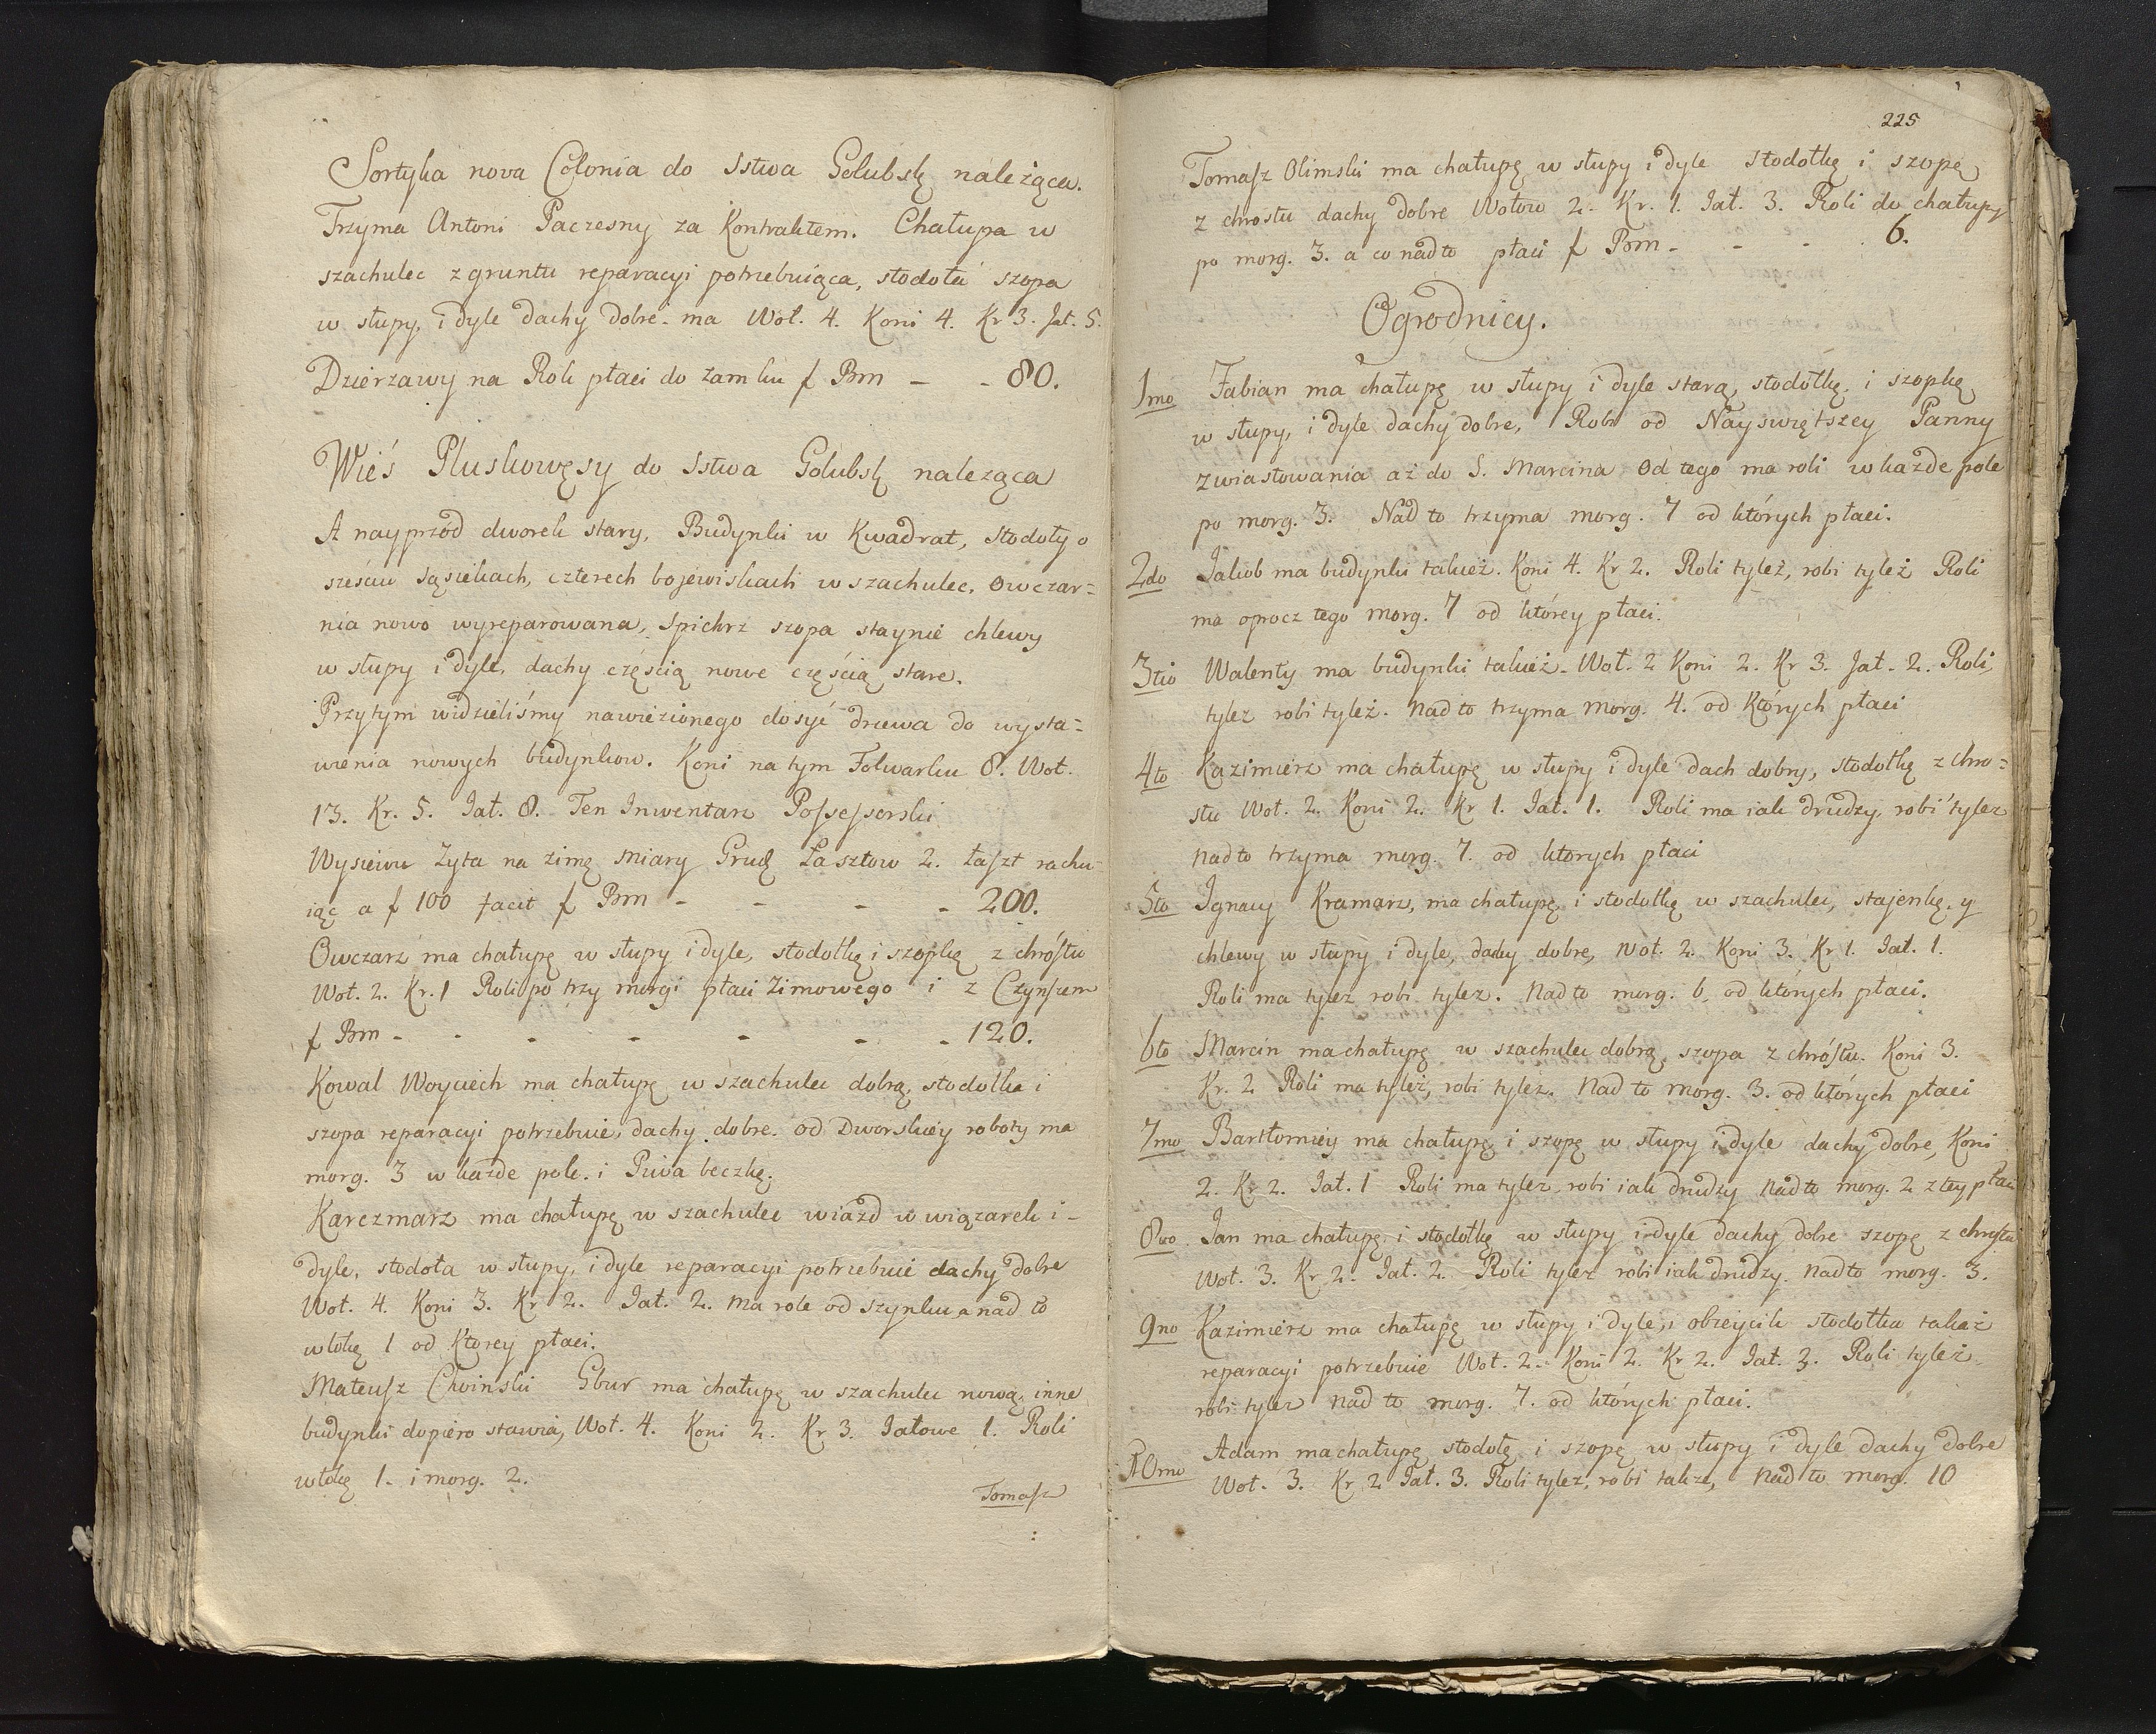 Sortyka nova Colonia do Sstwa Golubsk należąca.
Trzyma Antoni Paczesny za Kontraktem. Chałupa w
szachulec z gruntu reparacyi potrzebuiąca, stodoła szopa
w słupy, i dyle dachy dobre. ma Woł. 4. Koni 4. Kr 3. Jał. 5.
Dzierzawy na Roli płaci do zamku f Prm - - 80.
Wieś Pluskowęsy do Sstwa Golubsk naleząca
A nayprzód dworek stary, Budynki w Kwadrat, stodoły o
sześciu sąsiekach, czterech bojewiskach w szachulec. Owczar=
nia nowo wyreparowana, spichrz szopa staynie chlewy
w słupy i dyle, dachy częścią nowe częścią stare.
Przytym widzieliśmy nawiezionego dosyć drzewa do wysta=
wienia nowych budynkow. Koni na tym Folwarku 8. Woł.
13. Kr. 5. Jał. 8. Ten Inwentarz Possessorski
Wysiewu Zyta na zimę miary Grud Łasztow 2. łaszt rachu=
iąc a f 100 facit f Prm - - - - 200.
Owczarz ma chałupę w słupy i dyle, stodołkę i szopkę z chróstu
Woł. 2. Kr. 1 Roli po trzy morgi płaci Zimowego i z Czynszem
f Prm - - - - - - - 120.
Kowal Woyciech ma chałupę w szachulec dobrą, stodołka i
szopa reparacyi potrzebuie, dachy dobre. od Dworskiey roboty ma
morg. 3 w każde pole. i Piwa beczkę.
Karczmarz ma chałupę w szachulec wiazd w wiązarek i -
dyle, stodoła w słupy, i dyle reparacyi potrzebuie dachy dobre
Woł. 4. Koni 3. Kr 2. Jał. 2. ma role od szynku a nad to
włokę 1 od Ktorey płaci.
Mateusz Cwinski Gbur ma chałupę w szachulec nową, inne
budynki dopiero stawia, Woł. 4. Koni 2. Kr 3. Jałowe 1. Roli
włokę 1. i morg. 2.
Tomasz
225
Tomasz Olimski ma chałupę w słupy i dyle stodołkę i szopę
z chrostu dachy dobre Wołow 2. Kr. 1. Jał. 3. Roli do chałupy
po morg. 3. a co nadto płaci f Prm - - - 6.
Ogrodnicy.
1mo Fabian ma chałupę w słupy i dyle starą, stodołkę, i szopkę
w słupy, i dyle dachy dobre, Robi od Nayswiętszey Panny
zwiastowania aż do S. Marcina Od tego ma roli w każde pole
po morg. 3. Nad to trzyma morg. 7 od których płaci.
2do Jakob ma budynki takież. Koni 4. Kr 2. Roli tyleż, robi tyleż Roli
ma oprocz tego morg. 7 od którey płaci.
3tio Walenty ma budynki takież. Woł. 2 Koni 2. Kr 3. Jał. 2. Roli,
tylez robi tyleż. nad to trzyma morg. 4. od Których płaci
4to Kazimierz ma chałupę w słupy i dyle dach dobry, stodołkę z chro=
stu Woł. 2. Koni 2. Kr 1. Jał. 1. Roli ma iak drudzy, robi tylez
nad to trzyma morg. 7. od ktorych płaci
5to Jgnacy Kramarz, ma chałupę, i stodołkę w szachulec, stajenkę. y
chlewy w słupy i dyle, dachy dobre, Woł. 2. Koni 3. Kr 1. Jał. 1.
Roli ma tylez robi tylez. Nad to morg. 6. od których płaci.
6to Marcin ma chałupę w szachulec dobrą, szopa z chróstu. Koni 3.
Kr. 2 Roli ma tyleż, robi tyleż. Nad to morg. 3. od których płaci
7mo Bartłomiéy ma chałupę i szopę w słupy i dyle dachy dobre, Koni
2. Kr 2. Jał. 1 Roli ma tylez, robi iak drudzy nad to morg. 2 z tey płaci
8vo Jan ma chałupę i stodołkę w słupy i dyle dachy dobre szopę z chrostu
Woł. 3. Kr 2. Jał. 2. Roli tylez robi iak drudzy. nad to morg. 3.
9no Kazimierz ma chałupę w słupy i dyle, i stodołka takaż
reparacyi potrzebuie Woł. 2. Koni 2. Kr 2. Jał. 3. Roli tyleż
robi tylez nad to morg. 7. od których płaci.
10mo Adam ma chałupę, stodołę i szopę w słupy i dyle dachy dobre
Woł. 3. Kr 2 Jał. 3. Roli tylez, robi takze, nad to morg. 10